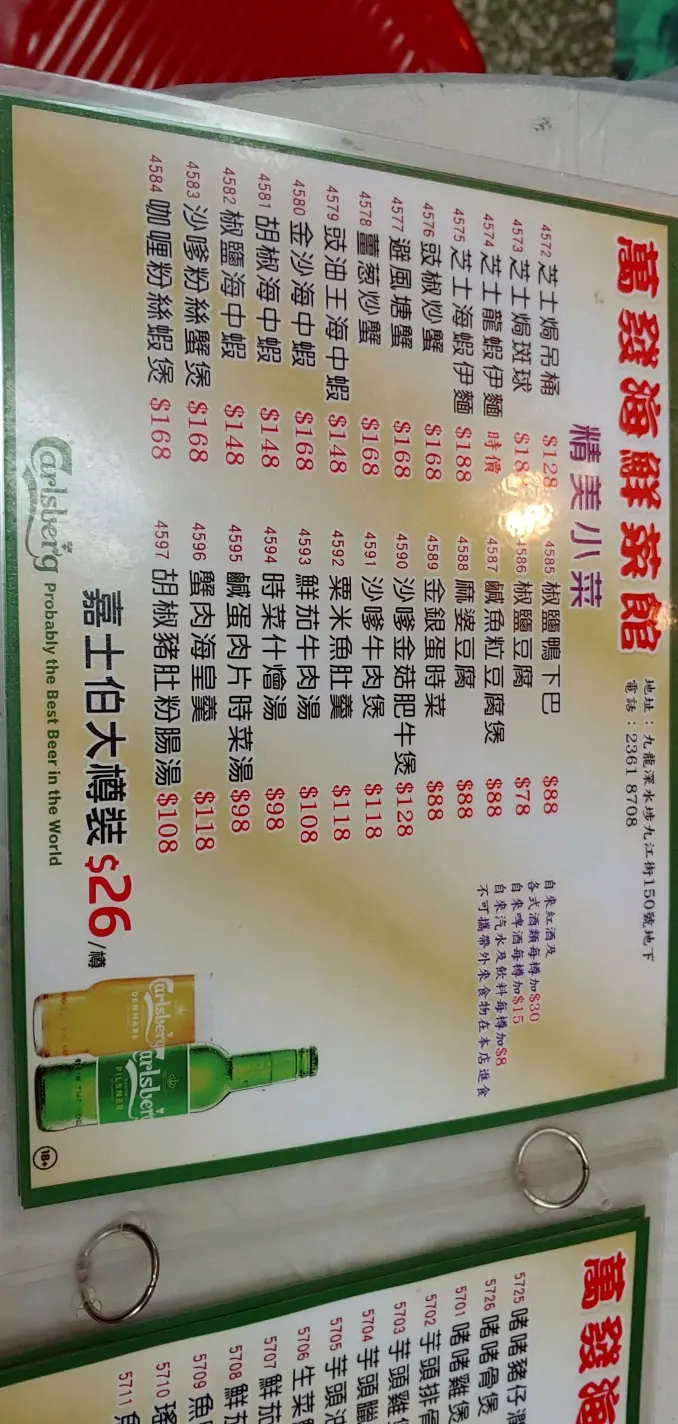 萬發海鮮菜館
地址：九龍深水埗九江街150號地下
電話：2361 8708
精美小菜
4572 芝士焗吊桶 $128
4573 芝士焗斑球
4574 芝士龍蝦伊麵 時價
4575 芝士海蝦伊麵 $188
4576 豉椒炒蟹 $168
4577 避風塘蟹 $168
4578 薑葱炒蟹 $168
4579 豉油王海中蝦 $148
4580 金沙海中蝦 $168
4581 胡椒海中蝦 $148
4582 椒鹽海中蝦 $148
4583 沙嗲粉絲蟹煲 $168
4584 咖喱粉絲蝦煲 $168
4585 椒鹽鴨下巴 $88
4586 椒鹽豆腐 $78
4587 鹹魚粒豆腐煲 $88
4588 麻婆豆腐 $88
4589 金銀蛋時菜 $88
4590 沙嗲金菇肥牛煲 $128
4591 沙嗲牛肉煲 $118
4592 粟米魚肚羹 $118
4593 鮮茄牛肉湯 $108
4594 時菜什燴湯 $98
4595 鹹蛋肉片時菜湯 $98
4596 蟹肉海皇羹 $118
4597 胡椒豬肚粉腸湯 $108
自來紅酒及
各式酒類每樽加$30
自來啤酒每樽加$15
自來汽水及飲料每樽加$8
不可攜帶外來食物在本店進食
嘉士伯大樽裝 $26/樽
Carlsberg Probably the Best Beer in the World
Carlsberg
DENMARK
Carlsberg
PILSNER
18+
萬發海
5725 啫啫豬仔
5726 啫啫骨煲
5701 啫啫雞煲
5702 芋頭排骨
5703 芋頭雞
5704 芋頭臘
5705 芋頭
5706 生菜
5707 鮮茄
5708 鮮茄
5709 魚
5710
5711